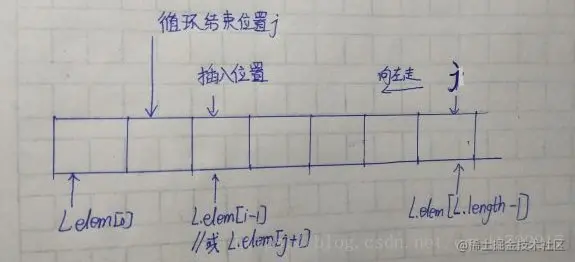 循环结束位置j
插入位置
向左走
j
L.elem[0]
L.elem[i-1]
//或 L.elem[j+1]
L.elem[L.length-1]
blog.csdn.net
@稀土掘金技术社区